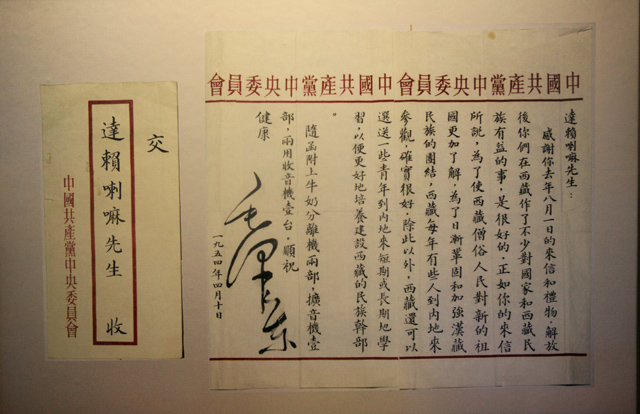 中國共產黨中央委員會
中國共產黨中央委員會
達賴喇嘛先生：
感謝你去年八月一日的來信和禮物。解放
後你們在西藏作了不少對國家和西藏民
族有益的事，是很好的。正如你的來信
所說，為了使西藏僧俗人民對新的祖
國更加了解，為了日漸鞏固和加強漢藏
民族的團結，西藏每年有些人到內地來
參觀，確實很好。除此以外，西藏還可以
選送一些青年到內地來短期或長期地學
習，以便更好地培養建設西藏的民族幹部。
隨函附上牛奶分離機兩部，擴音機壹
部，兩用收音機壹台。順祝
健康
毛澤東
一九五四年四月十日
交
達賴喇嘛先生 收
中國共產黨中央委員會